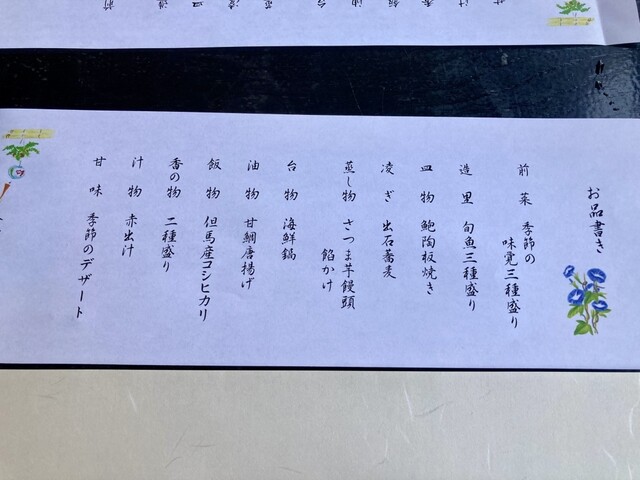 お品書き
前菜 季節の
味覚三種盛り
造里 旬魚三種盛り
皿物 鮑陶板焼き
凌ぎ 出石蕎麦
蒸し物 さつま芋饅頭
餡かけ
台物 海鮮鍋
油物 甘鯛唐揚げ
飯物 但馬産コシヒカリ
香の物 二種盛り
汁物 赤出汁
甘味 季節のデザート